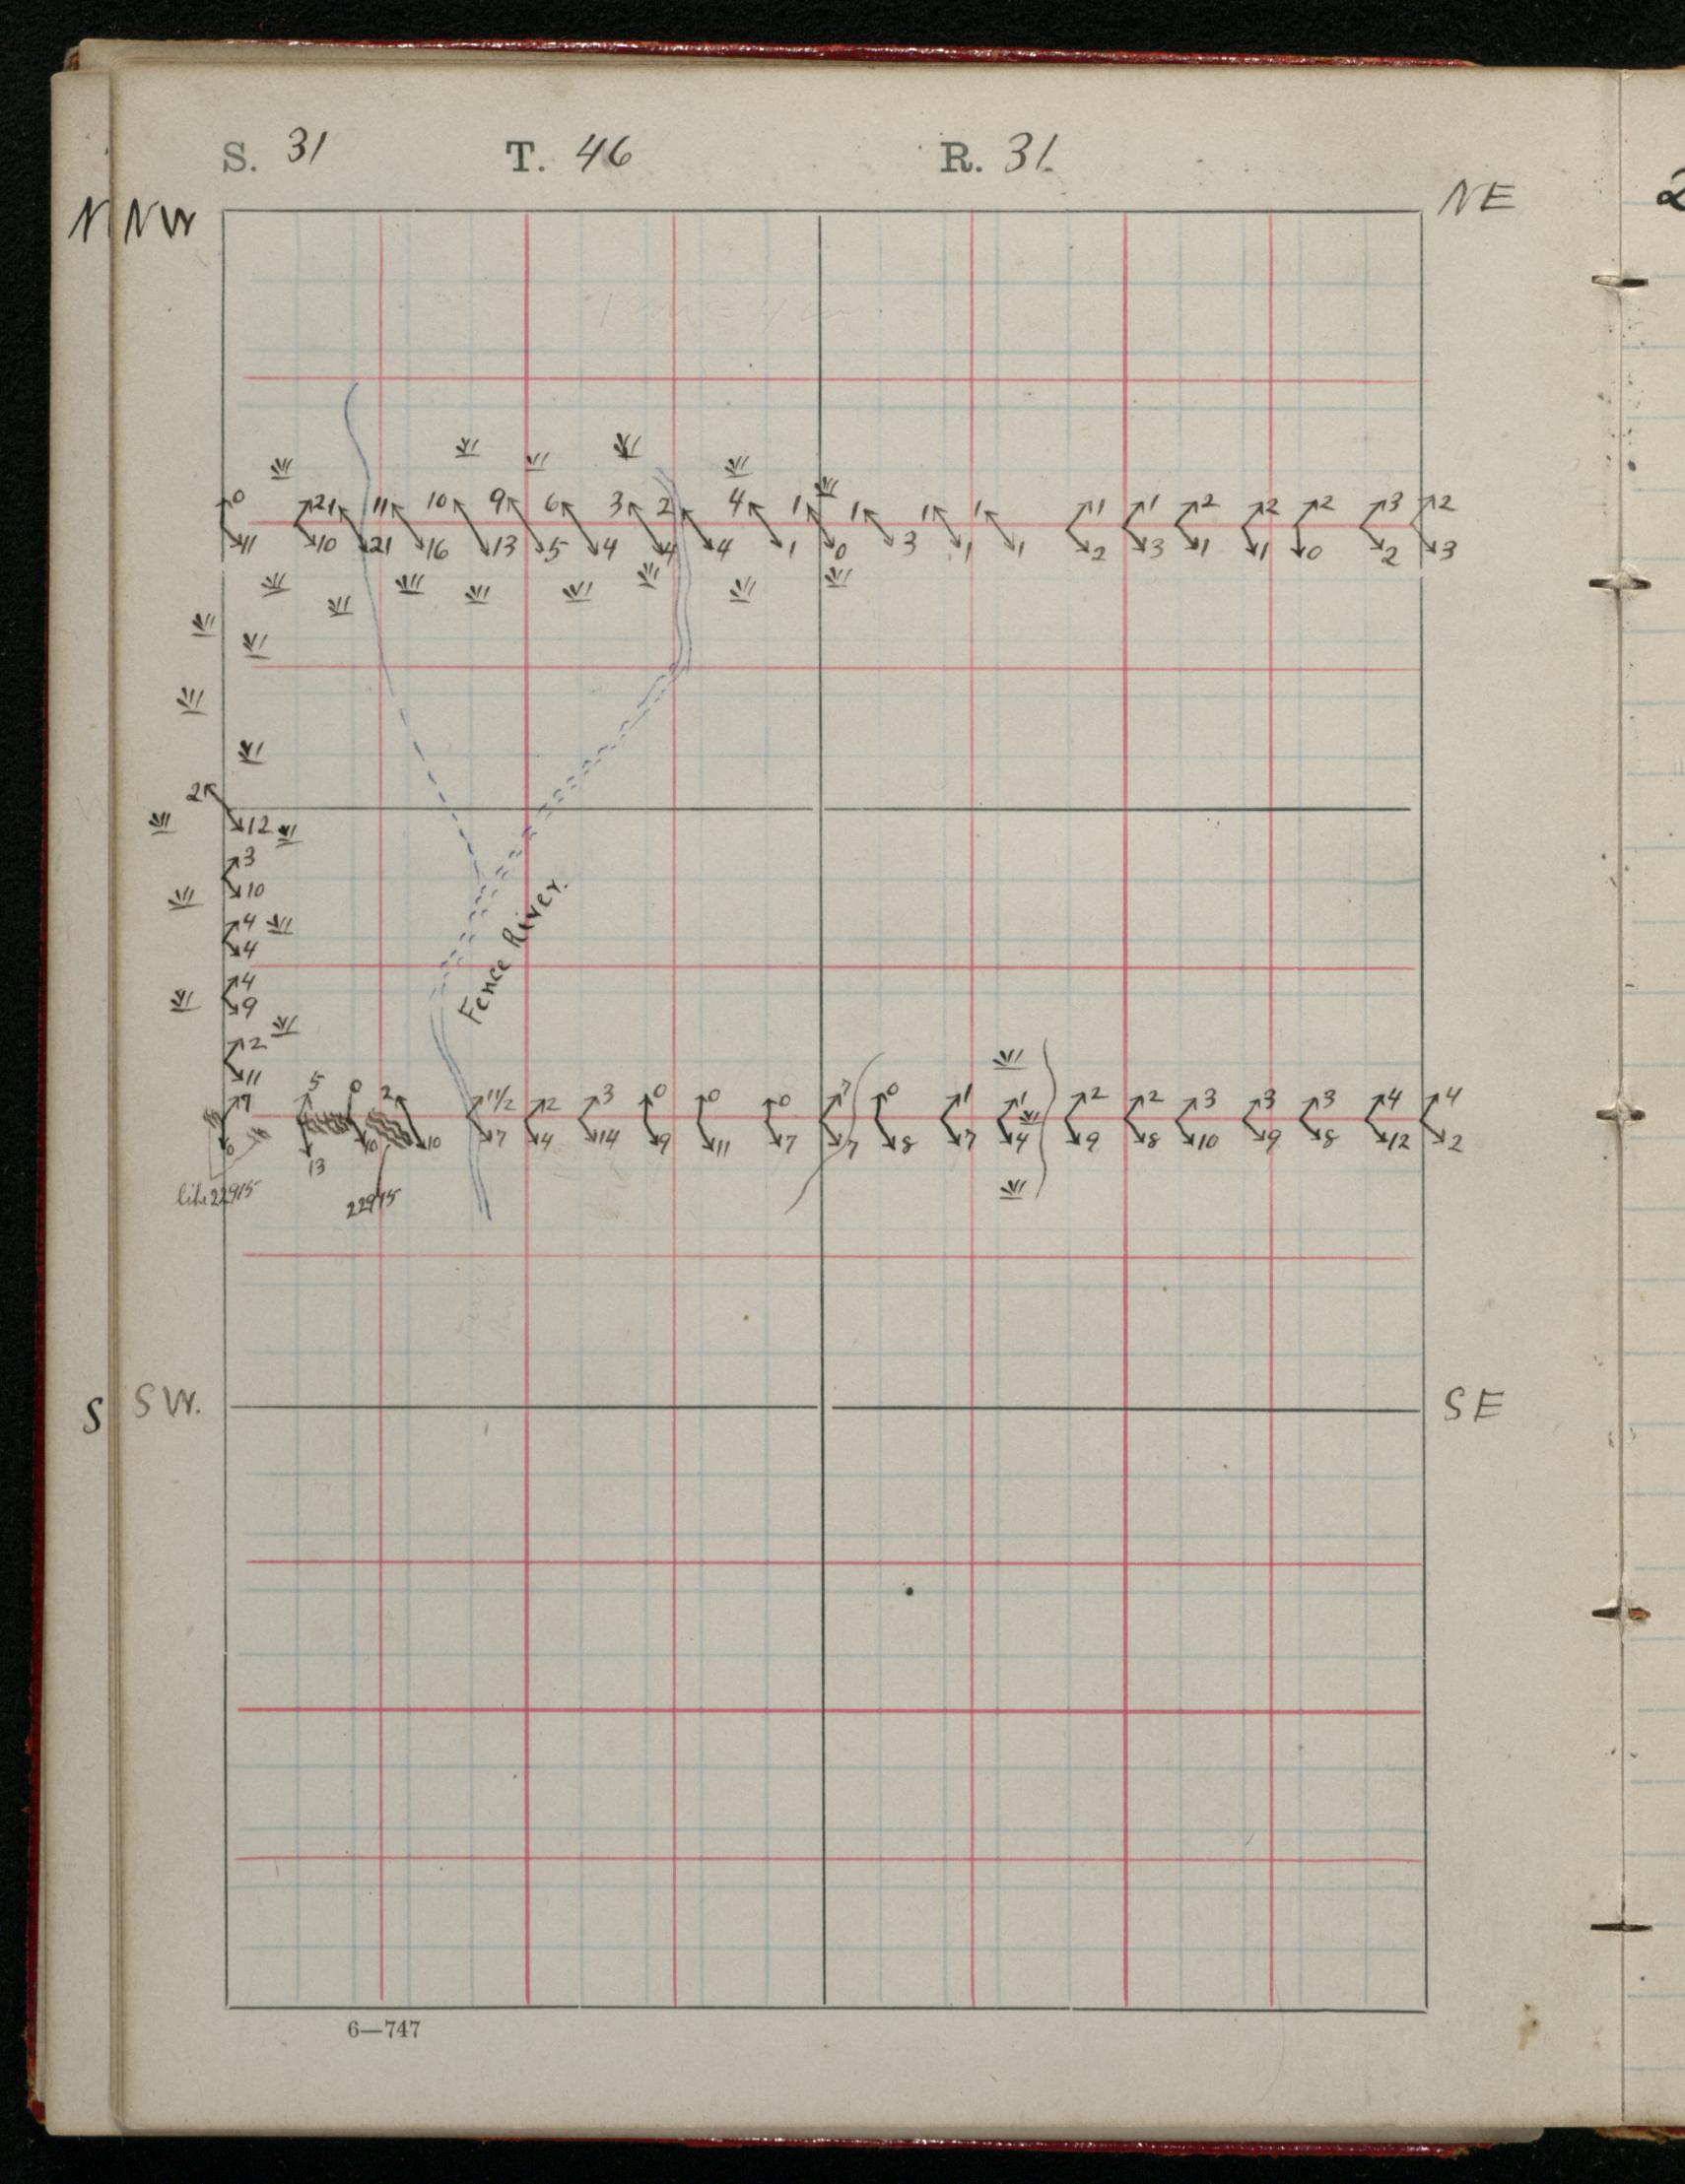 S. 31 T. 46 R. 31
N NW NE 2
0 21 11 10 9 6 3 2 4 1 1 1 1 1 1 2 2 2 3 2
11 10 21 16 13 5 4 4 4 1 0 3 1 1 2 3 1 1 0 2 3
2
12
3
10
4
4
4
9
2
11
Fence River.
7 5 0 2 1 1/2 2 3 0 0 0 7 0 1 1 2 2 3 3 3 4 4
6 13 10 10 7 4 14 9 11 7 7 8 7 4 9 8 10 9 8 12 2
like 22915
22915
S SW. SE
6—747